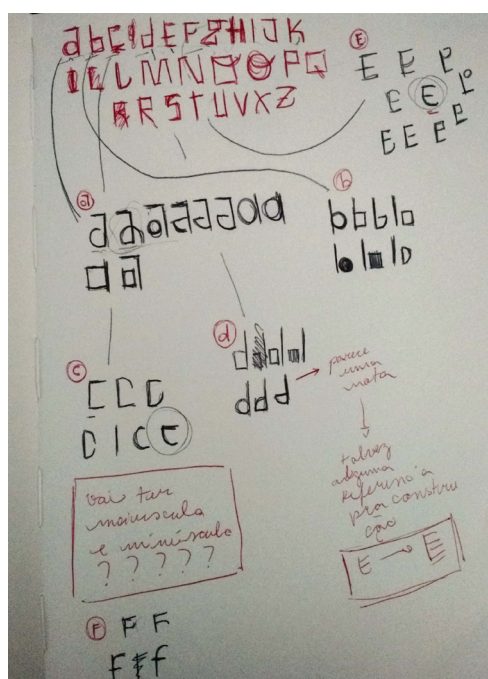 a b C d E F G H I J K
L M N O P Q
R S T U V X Z
E
E E P
E E
E E P P
a
a a a a a a a a
a a
b
b b b b
b b b b
d
d d d
d d d
parece
uma
nota
talvez
alguma
referência
pra constru
ção
E → E
c
C C C
C I C C
vai ter
maiúscula
e minúscula
? ? ? ? ?
F
F F
F F f